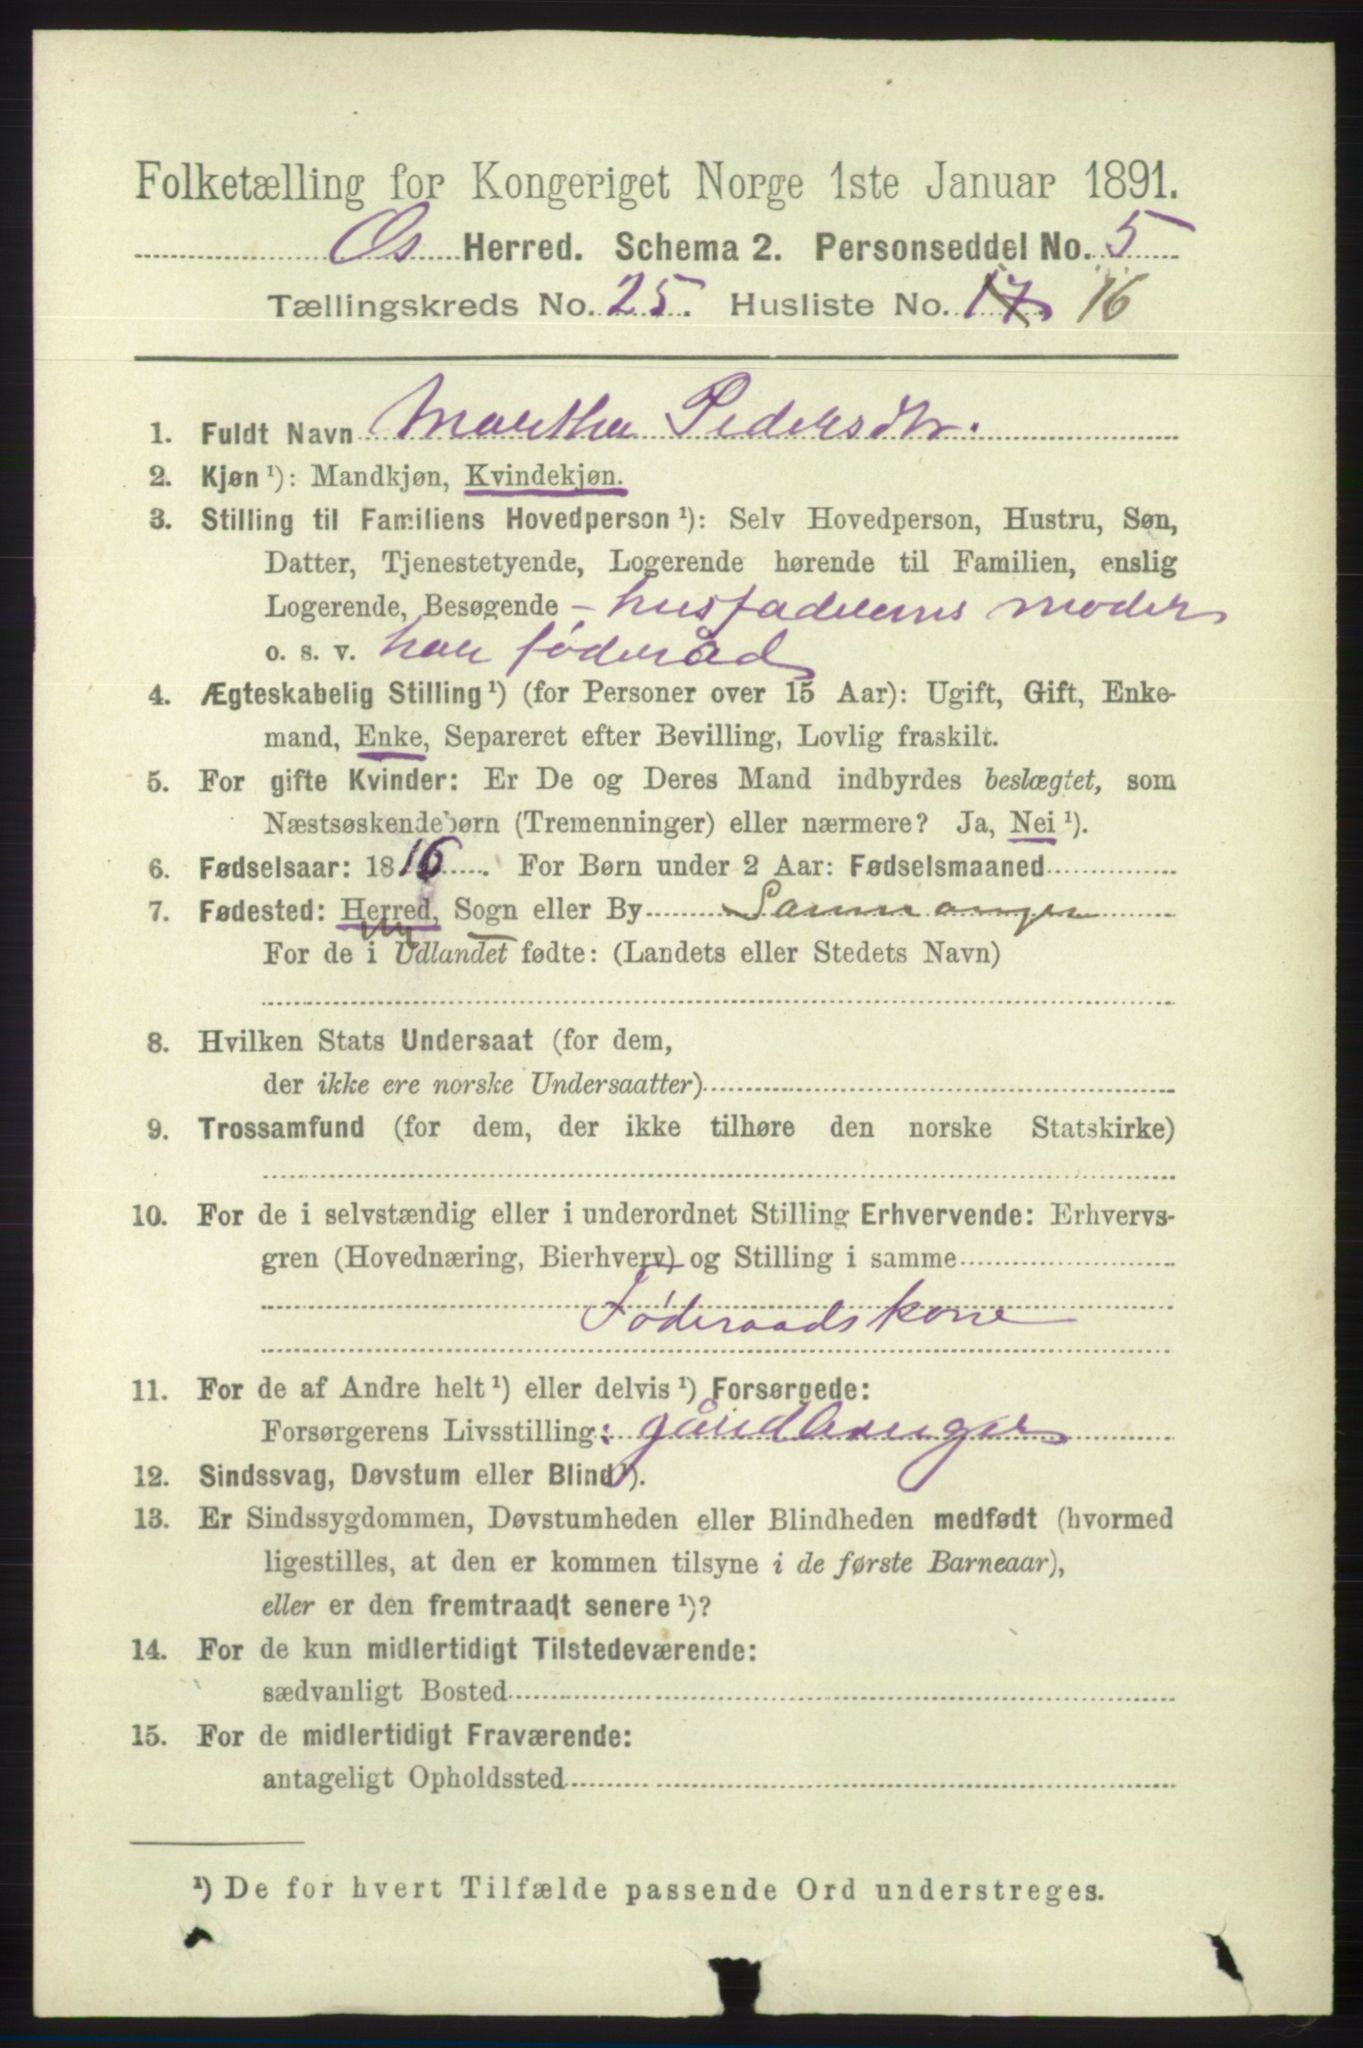 Folketælling for Kongeriget Norge 1ste Januar 1891.
Os Herred. Schema 2. Personseddel No. 5
Tællingskreds No. 25. Husliste No. 17 16
1. Fuldt Navn Martha Pedersdtr.
2. Kjøn ¹): Mandkjøn, Kvindekjøn.
3. Stilling til Familiens Hovedperson ¹): Selv Hovedperson, Hustru, Søn,
Datter, Tjenestetyende, Logerende hørende til Familien, enslig
Logerende, Besøgende - husfaderens moder
o. s. v. har føderåd
4. Ægteskabelig Stilling ¹) (for Personer over 15 Aar): Ugift, Gift, Enke-
mand, Enke, Separeret efter Bevilling, Lovlig fraskilt.
5. For gifte Kvinder: Er De og Deres Mand indbyrdes beslægtet, som
Næstsøskendebørn (Tremenninger) eller nærmere? Ja, Nei ¹).
6. Fødselsaar: 1816. For Børn under 2 Aar: Fødselsmaaned
7. Fødested: Herred, Sogn eller By Samnanger
For de i Udlandet fødte: (Landets eller Stedets Navn)
8. Hvilken Stats Undersaat (for dem,
der ikke ere norske Undersaatter)
9. Trossamfund (for dem, der ikke tilhøre den norske Statskirke)
10. For de i selvstændig eller i underordnet Stilling Erhvervende: Erhvervs-
gren (Hovednæring, Bierhverv) og Stilling i samme
Føderaadskone
11. For de af Andre helt ¹) eller delvis ¹) Forsørgede:
Forsørgerens Livsstilling: gårdbruger
12. Sindssvag, Døvstum eller Blind ¹).
13. Er Sindssygdommen, Døvstumheden eller Blindheden medfødt (hvormed
ligestilles, at den er kommen tilsyne i de første Barneaar),
eller er den fremtraadt senere ¹)?
14. For de kun midlertidigt Tilstedeværende:
sædvanligt Bosted
15. For de midlertidigt Fraværende:
antageligt Opholdssted
¹) De for hvert Tilfælde passende Ord understreges.